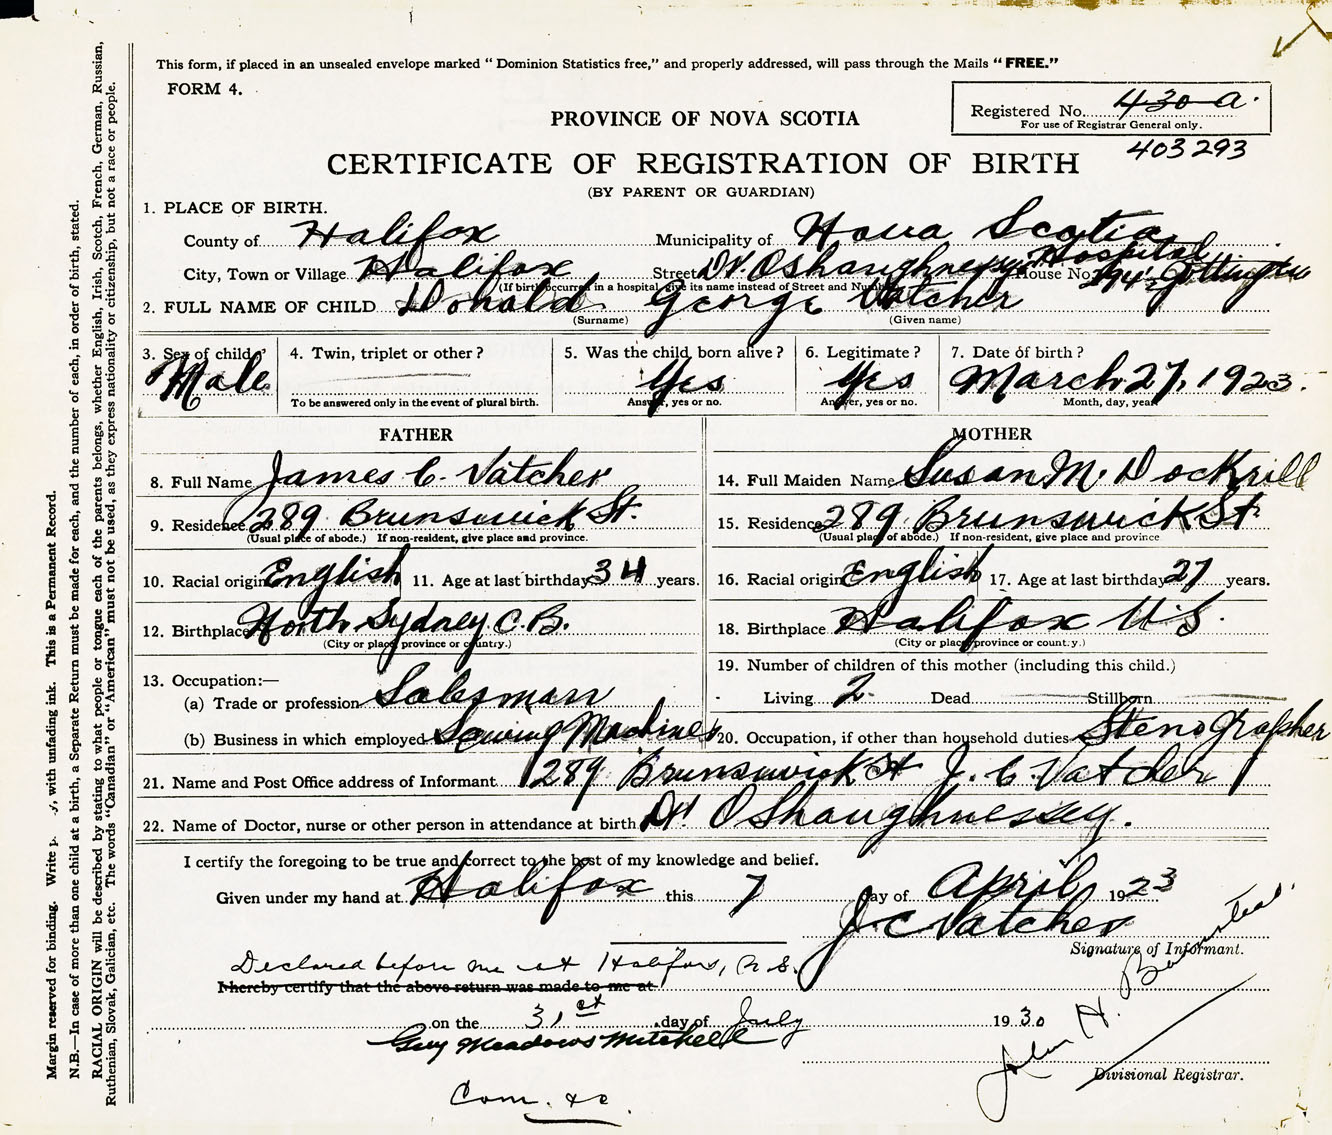 This form, if placed in an unsealed envelope marked " Dominion Statistics free," and properly addressed, will pass through the Mails " FREE."
FORM 4.
Registered No. 430-a.
For use of Registrar General only.
403293
PROVINCE OF NOVA SCOTIA
CERTIFICATE OF REGISTRATION OF BIRTH
(BY PARENT OR GUARDIAN)
1. PLACE OF BIRTH.
County of Halifax Municipality of Nova Scotia
City, Town or Village Halifax, Street Dr. O'Shaughnessy's Hospital House No.
(If birth occurred in a hospital give its name instead of Street and Number)
2. FULL NAME OF CHILD Donald George Vatcher
(Surname) (Given name)
3. Sex of child? Male
4. Twin, triplet or other ?
To be answered only in the event of plural birth.
5. Was the child born alive ? Yes
Answer, yes or no.
6. Legitimate ? Yes
Answer, yes or no.
7. Date of birth ? March 27, 1923.
Month, day, year
FATHER
8. Full Name James C. Vatcher
9. Residence 289 Brunswick St.
(Usual place of abode.) If non-resident, give place and province.
10. Racial origin English 11. Age at last birthday 34 years.
12. Birthplace North Sydney C.B.
(City or place, province or country.)
13. Occupation:—
(a) Trade or profession Salesman
(b) Business in which employed Sewing Machines
MOTHER
14. Full Maiden Name Susan M. Dockrill
15. Residence 289 Brunswick St.
(Usual place of abode.) If non-resident, give place and province
16. Racial origin English 17. Age at last birthday 27 years.
18. Birthplace Halifax N.S.
(City or place, province or county.)
19. Number of children of this mother (including this child.)
Living 2 Dead Stillborn
20. Occupation, if other than household duties Stenographer
21. Name and Post Office address of Informant 289 Brunswick St J. C. Vatcher
22. Name of Doctor, nurse or other person in attendance at birth Dr. O'Shaughnessey.
I certify the foregoing to be true and correct to the best of my knowledge and belief.
Given under my hand at Halifax this 7 day of April 1923
J C Vatcher
Signature of Informant.
Declared before me at Halifax, N.S.
I hereby certify that the above return was made to me at
on the 31st day of July 1930
Guy Meadows Mitchell
John H.
Divisional Registrar.
Com. &c.
Margin reserved for binding. Write with unfading ink. This is a Permanent Record.
N.B.—In case of more than one child at a birth, a Separate Return must be made for each, and the number of each, in order of birth, stated.
RACIAL ORIGIN will be described by stating to what people or tongue each of the parents belongs, whether English, Irish, Scotch, French, German, Russian,
Ruthenian, Slovak, Galician, etc. The words "Canadian" or "American" must not be used, as they express nationality or citizenship, but not a race or people.